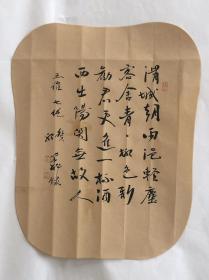 渭城朝雨浥輕塵
客舍青〻柳色新
勸君更進一杯酒
西出陽関無故人
王維七絕